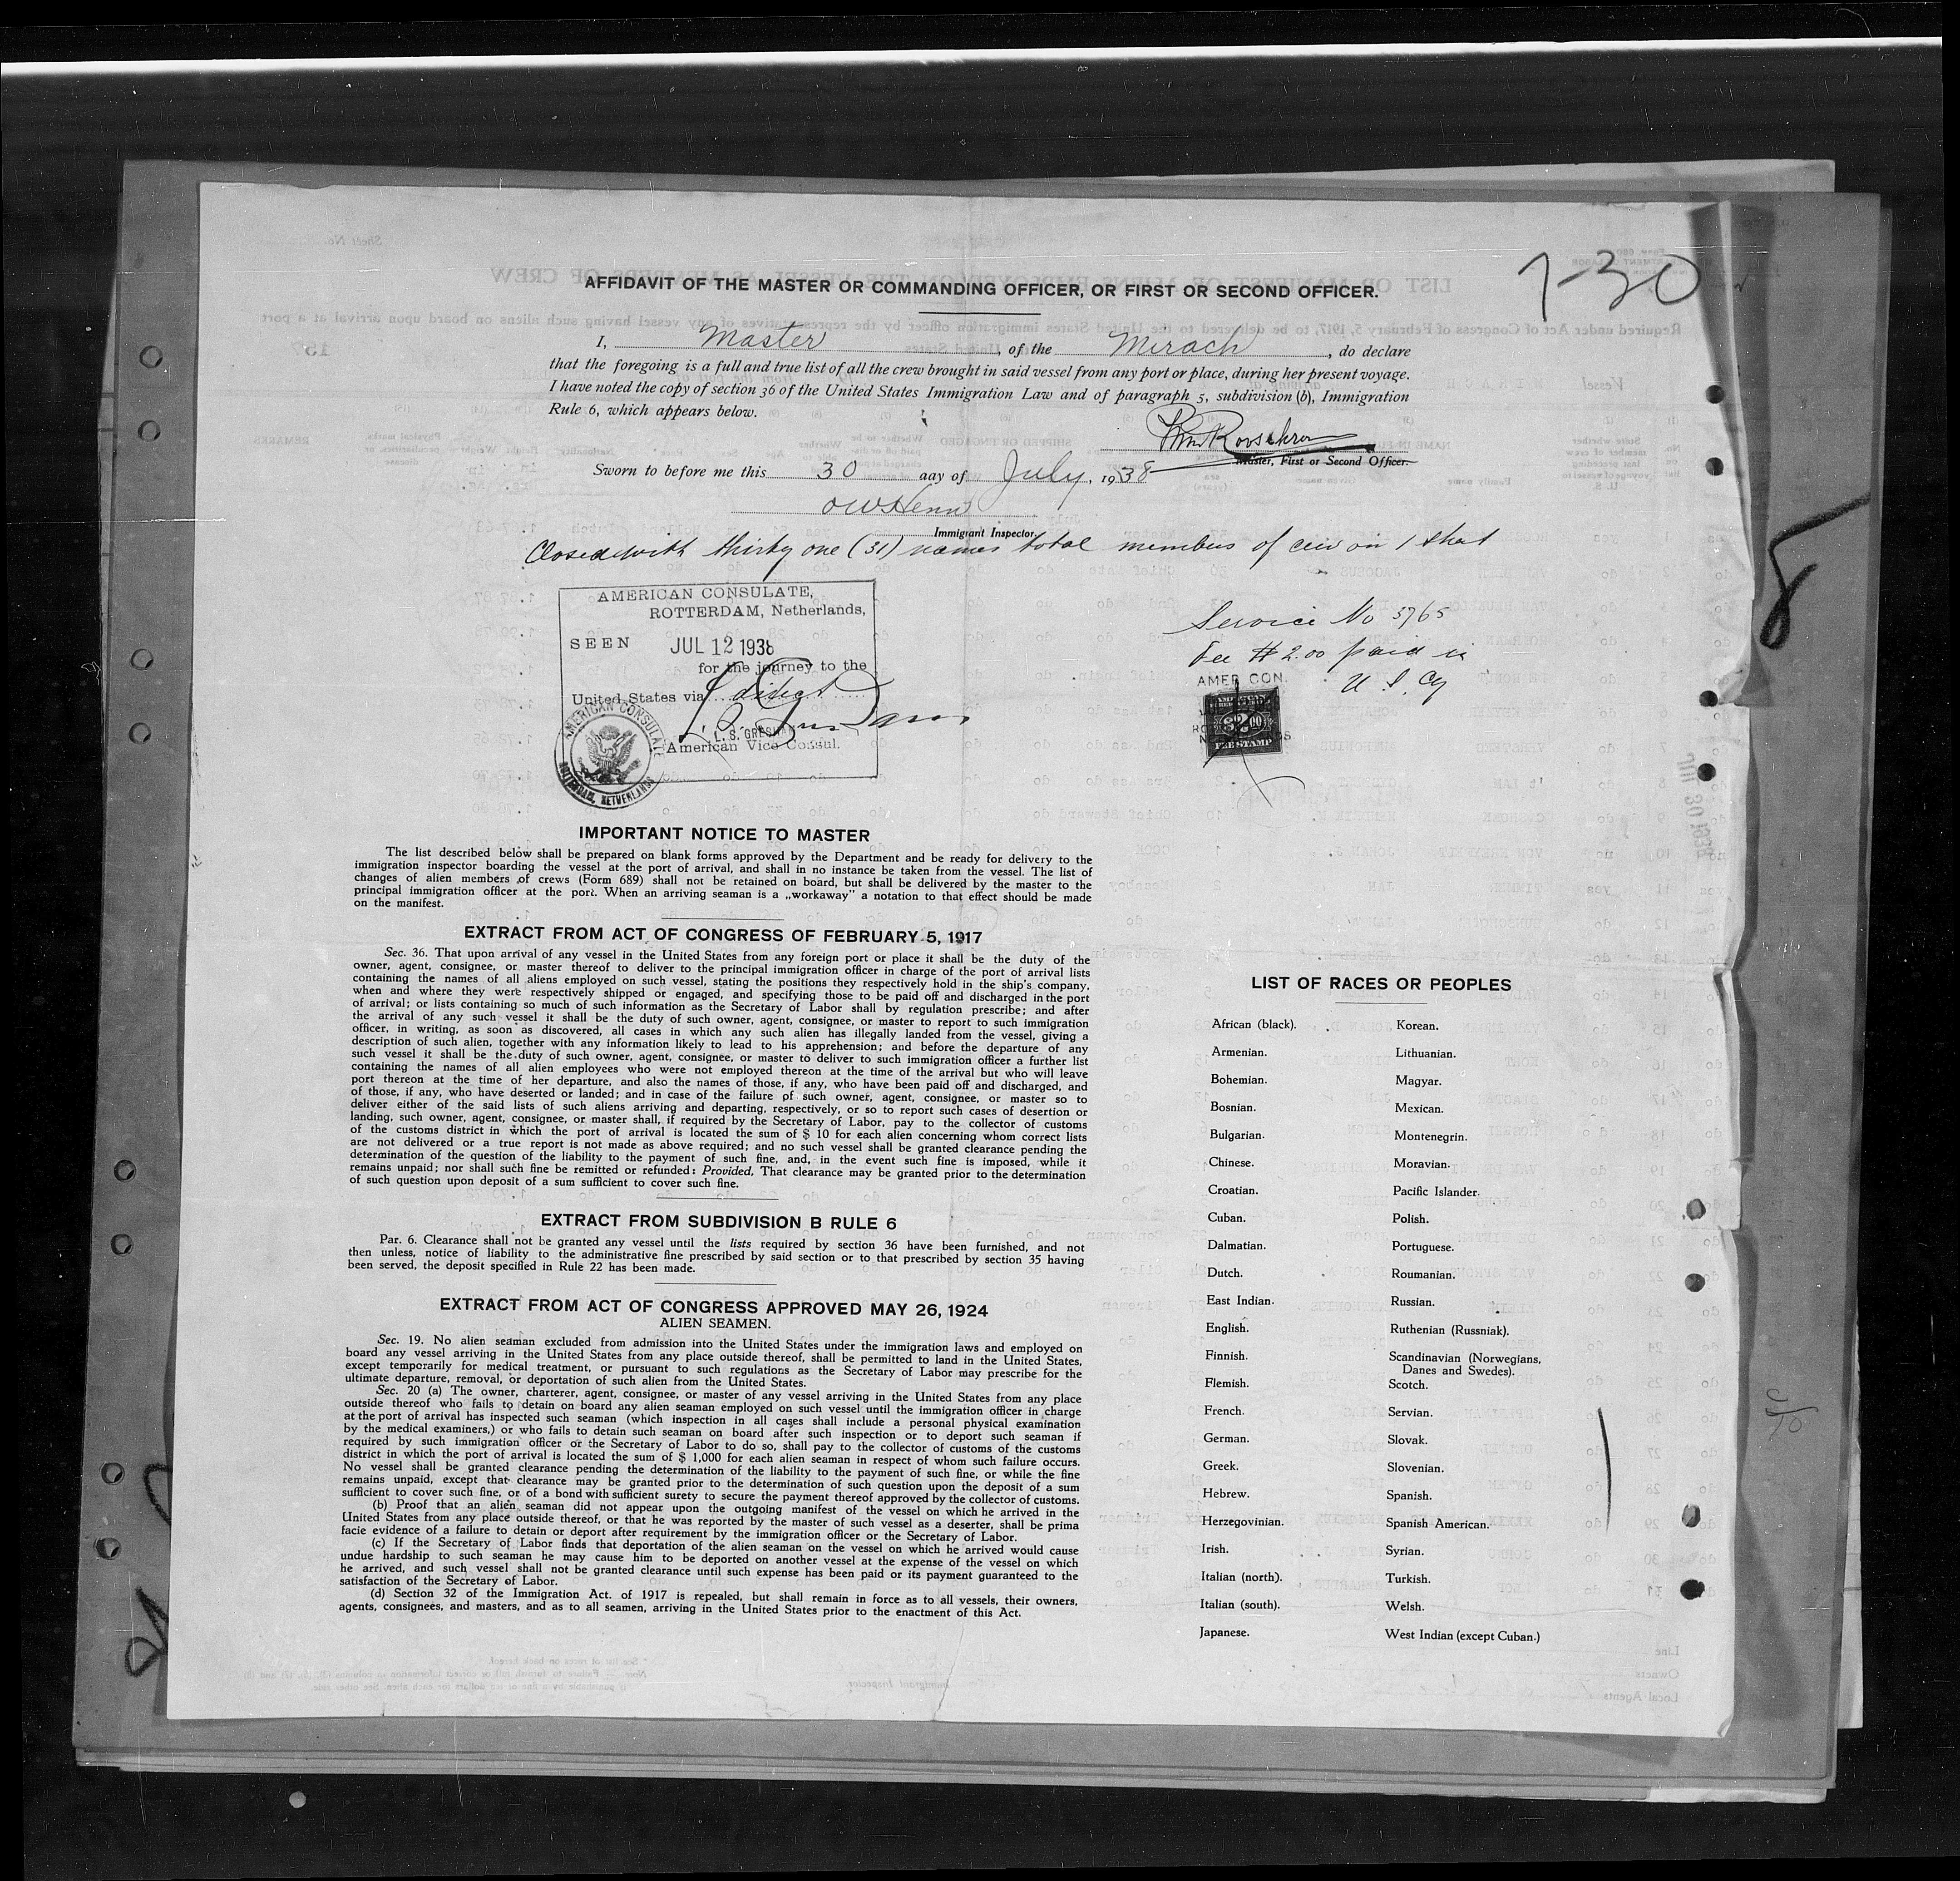 7-30
AFFIDAVIT OF THE MASTER OR COMMANDING OFFICER, OR FIRST OR SECOND OFFICER.
I, Master, of the Mirach, do declare
that the foregoing is a full and true list of all the crew brought in said vessel from any port or place, during her present voyage.
I have noted the copy of section 36 of the United States Immigration Law and of paragraph 5, subdivision (b), Immigration
Rule 6, which appears below.
Master, First or Second Officer.
Sworn to before me this 30 day of July, 1938
Immigrant Inspector.
Closed with thirty one (31) names total members of on 1
AMERICAN CONSULATE,
ROTTERDAM, Netherlands,
SEEN JUL 12 1938
for the journey to the
United States via direct
American Vice Consul.
AMERICAN CONSULATE
ROTTERDAM, NETHERLANDS
Service No 3765
Fee # 2.00 paid in
U. S. Cy
AMER CON.
FEE STAMP
IMPORTANT NOTICE TO MASTER
The list described below shall be prepared on blank forms approved by the Department and be ready for delivery to the
immigration inspector boarding the vessel at the port of arrival, and shall in no instance be taken from the vessel. The list of
changes of alien members of crews (Form 689) shall not be retained on board, but shall be delivered by the master to the
principal immigration officer at the port. When an arriving seaman is a „workaway” a notation to that effect should be made
on the manifest.
EXTRACT FROM ACT OF CONGRESS OF FEBRUARY 5, 1917
Sec. 36. That upon arrival of any vessel in the United States from any foreign port or place it shall be the duty of the
owner, agent, consignee, or master thereof to deliver to the principal immigration officer in charge of the port of arrival lists
containing the names of all aliens employed on such vessel, stating the positions they respectively hold in the ship's company,
when and where they were respectively shipped or engaged, and specifying those to be paid off and discharged in the port
of arrival; or lists containing so much of such information as the Secretary of Labor shall by regulation prescribe; and after
the arrival of any such vessel it shall be the duty of such owner, agent, consignee, or master to report to such immigration
officer, in writing, as soon as discovered, all cases in which any such alien has illegally landed from the vessel, giving a
description of such alien, together with any information likely to lead to his apprehension; and before the departure of any
such vessel it shall be the duty of such owner, agent, consignee, or master to deliver to such immigration officer a further list
containing the names of all alien employees who were not employed thereon at the time of the arrival but who will leave
port thereon at the time of her departure, and also the names of those, if any, who have been paid off and discharged, and
of those, if any, who have deserted or landed; and in case of the failure of such owner, agent, consignee, or master so to
deliver either of the said lists of such aliens arriving and departing, respectively, or so to report such cases of desertion or
landing, such owner, agent, consignee, or master shall, if required by the Secretary of Labor, pay to the collector of customs
of the customs district in which the port of arrival is located the sum of $ 10 for each alien concerning whom correct lists
are not delivered or a true report is not made as above required; and no such vessel shall be granted clearance pending the
determination of the question of the liability to the payment of such fine, and, in the event such fine is imposed, while it
remains unpaid; nor shall such fine be remitted or refunded: Provided, That clearance may be granted prior to the determination
of such question upon deposit of a sum sufficient to cover such fine.
EXTRACT FROM SUBDIVISION B RULE 6
Par. 6. Clearance shall not be granted any vessel until the lists required by section 36 have been furnished, and not
then unless, notice of liability to the administrative fine prescribed by said section or to that prescribed by section 35 having
been served, the deposit specified in Rule 22 has been made.
EXTRACT FROM ACT OF CONGRESS APPROVED MAY 26, 1924
ALIEN SEAMEN.
Sec. 19. No alien seaman excluded from admission into the United States under the immigration laws and employed on
board any vessel arriving in the United States from any place outside thereof, shall be permitted to land in the United States,
except temporarily for medical treatment, or pursuant to such regulations as the Secretary of Labor may prescribe for the
ultimate departure, removal, or deportation of such alien from the United States.
Sec. 20 (a) The owner, charterer, agent, consignee, or master of any vessel arriving in the United States from any place
outside thereof who fails to detain on board any alien seaman employed on such vessel until the immigration officer in charge
at the port of arrival has inspected such seaman (which inspection in all cases shall include a personal physical examination
by the medical examiners,) or who fails to detain such seaman on board after such inspection or to deport such seaman if
required by such immigration officer or the Secretary of Labor to do so, shall pay to the collector of customs of the customs
district in which the port of arrival is located the sum of $ 1,000 for each alien seaman in respect of whom such failure occurs.
No vessel shall be granted clearance pending the determination of the liability to the payment of such fine, or while the fine
remains unpaid, except that clearance may be granted prior to the determination of such question upon the deposit of a sum
sufficient to cover such fine, or of a bond with sufficient surety to secure the payment thereof approved by the collector of customs.
(b) Proof that an alien seaman did not appear upon the outgoing manifest of the vessel on which he arrived in the
United States from any place outside thereof, or that he was reported by the master of such vessel as a deserter, shall be prima
facie evidence of a failure to detain or deport after requirement by the immigration officer or the Secretary of Labor.
(c) If the Secretary of Labor finds that deportation of the alien seaman on the vessel on which he arrived would cause
undue hardship to such seaman he may cause him to be deported on another vessel at the expense of the vessel on which
he arrived, and such vessel shall not be granted clearance until such expense has been paid or its payment guaranteed to the
satisfaction of the Secretary of Labor.
(d) Section 32 of the Immigration Act. of 1917 is repealed, but shall remain in force as to all vessels, their owners,
agents, consignees, and masters, and as to all seamen, arriving in the United States prior to the enactment of this Act.
LIST OF RACES OR PEOPLES
African (black). Korean.
Armenian. Lithuanian.
Bohemian. Magyar.
Bosnian. Mexican.
Bulgarian. Montenegrin.
Chinese. Moravian.
Croatian. Pacific Islander.
Cuban. Polish.
Dalmatian. Portuguese.
Dutch. Roumanian.
East Indian. Russian.
English. Ruthenian (Russniak).
Finnish. Scandinavian (Norwegians,
Danes and Swedes).
Flemish. Scotch.
French. Servian.
German. Slovak.
Greek. Slovenian.
Hebrew. Spanish.
Herzegovinian. Spanish American.
Irish. Syrian.
Italian (north). Turkish.
Italian (south). Welsh.
Japanese. West Indian (except Cuban.)